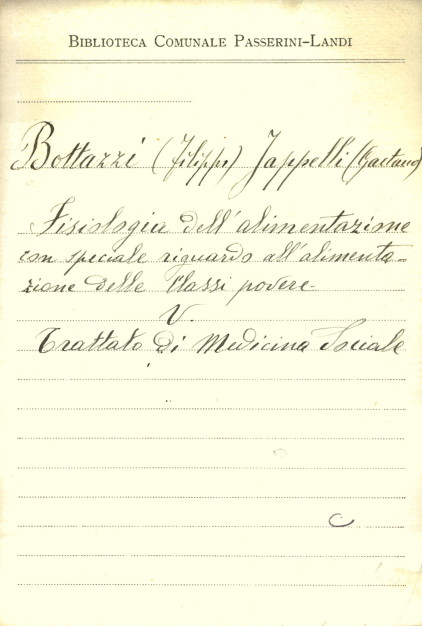 BIBLIOTECA COMUNALE PASSERINI-LANDI
Bottazzi (Filippo) Jappelli (Gaetano)
Fisiologia dell'alimentazione
con speciale riguardo all'alimenta-
zione delle Classi povere-
V.
Trattato di Medicina Sociale